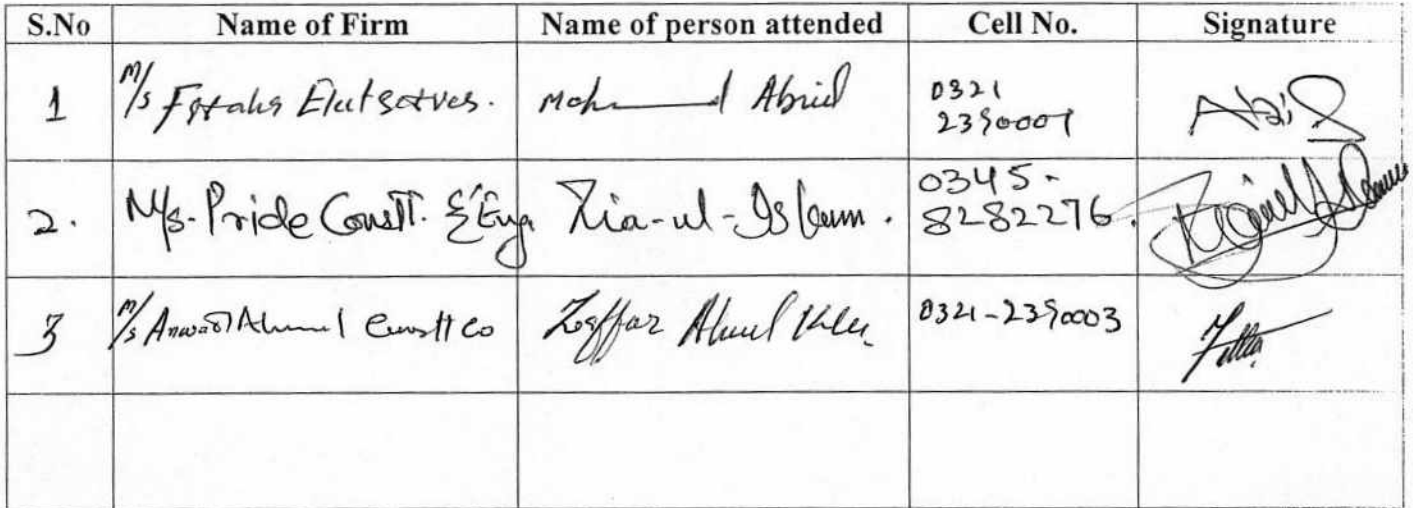 S.No Name of Firm Name of person attended Cell No. Signature
1 M/s Abid 0321
2390001
2. M/s. Pride Constt. & Eng. Zia-ul-Islam. 0345-
8282276.
3 M/s Anwar Ahmed Constt Co Zaffar Ahmed Khan 0321-2390003